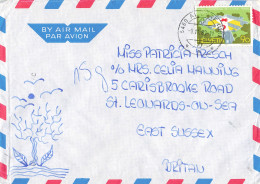 BY AIR MAIL
PAR AVION
MISS PATRICIA FRESCH
C/O MRS. CELIA MANNING
5 CARISBROOKE ROAD
ST. LEONARDS-ON-SEA
EAST SUSSEX
BRITAIN